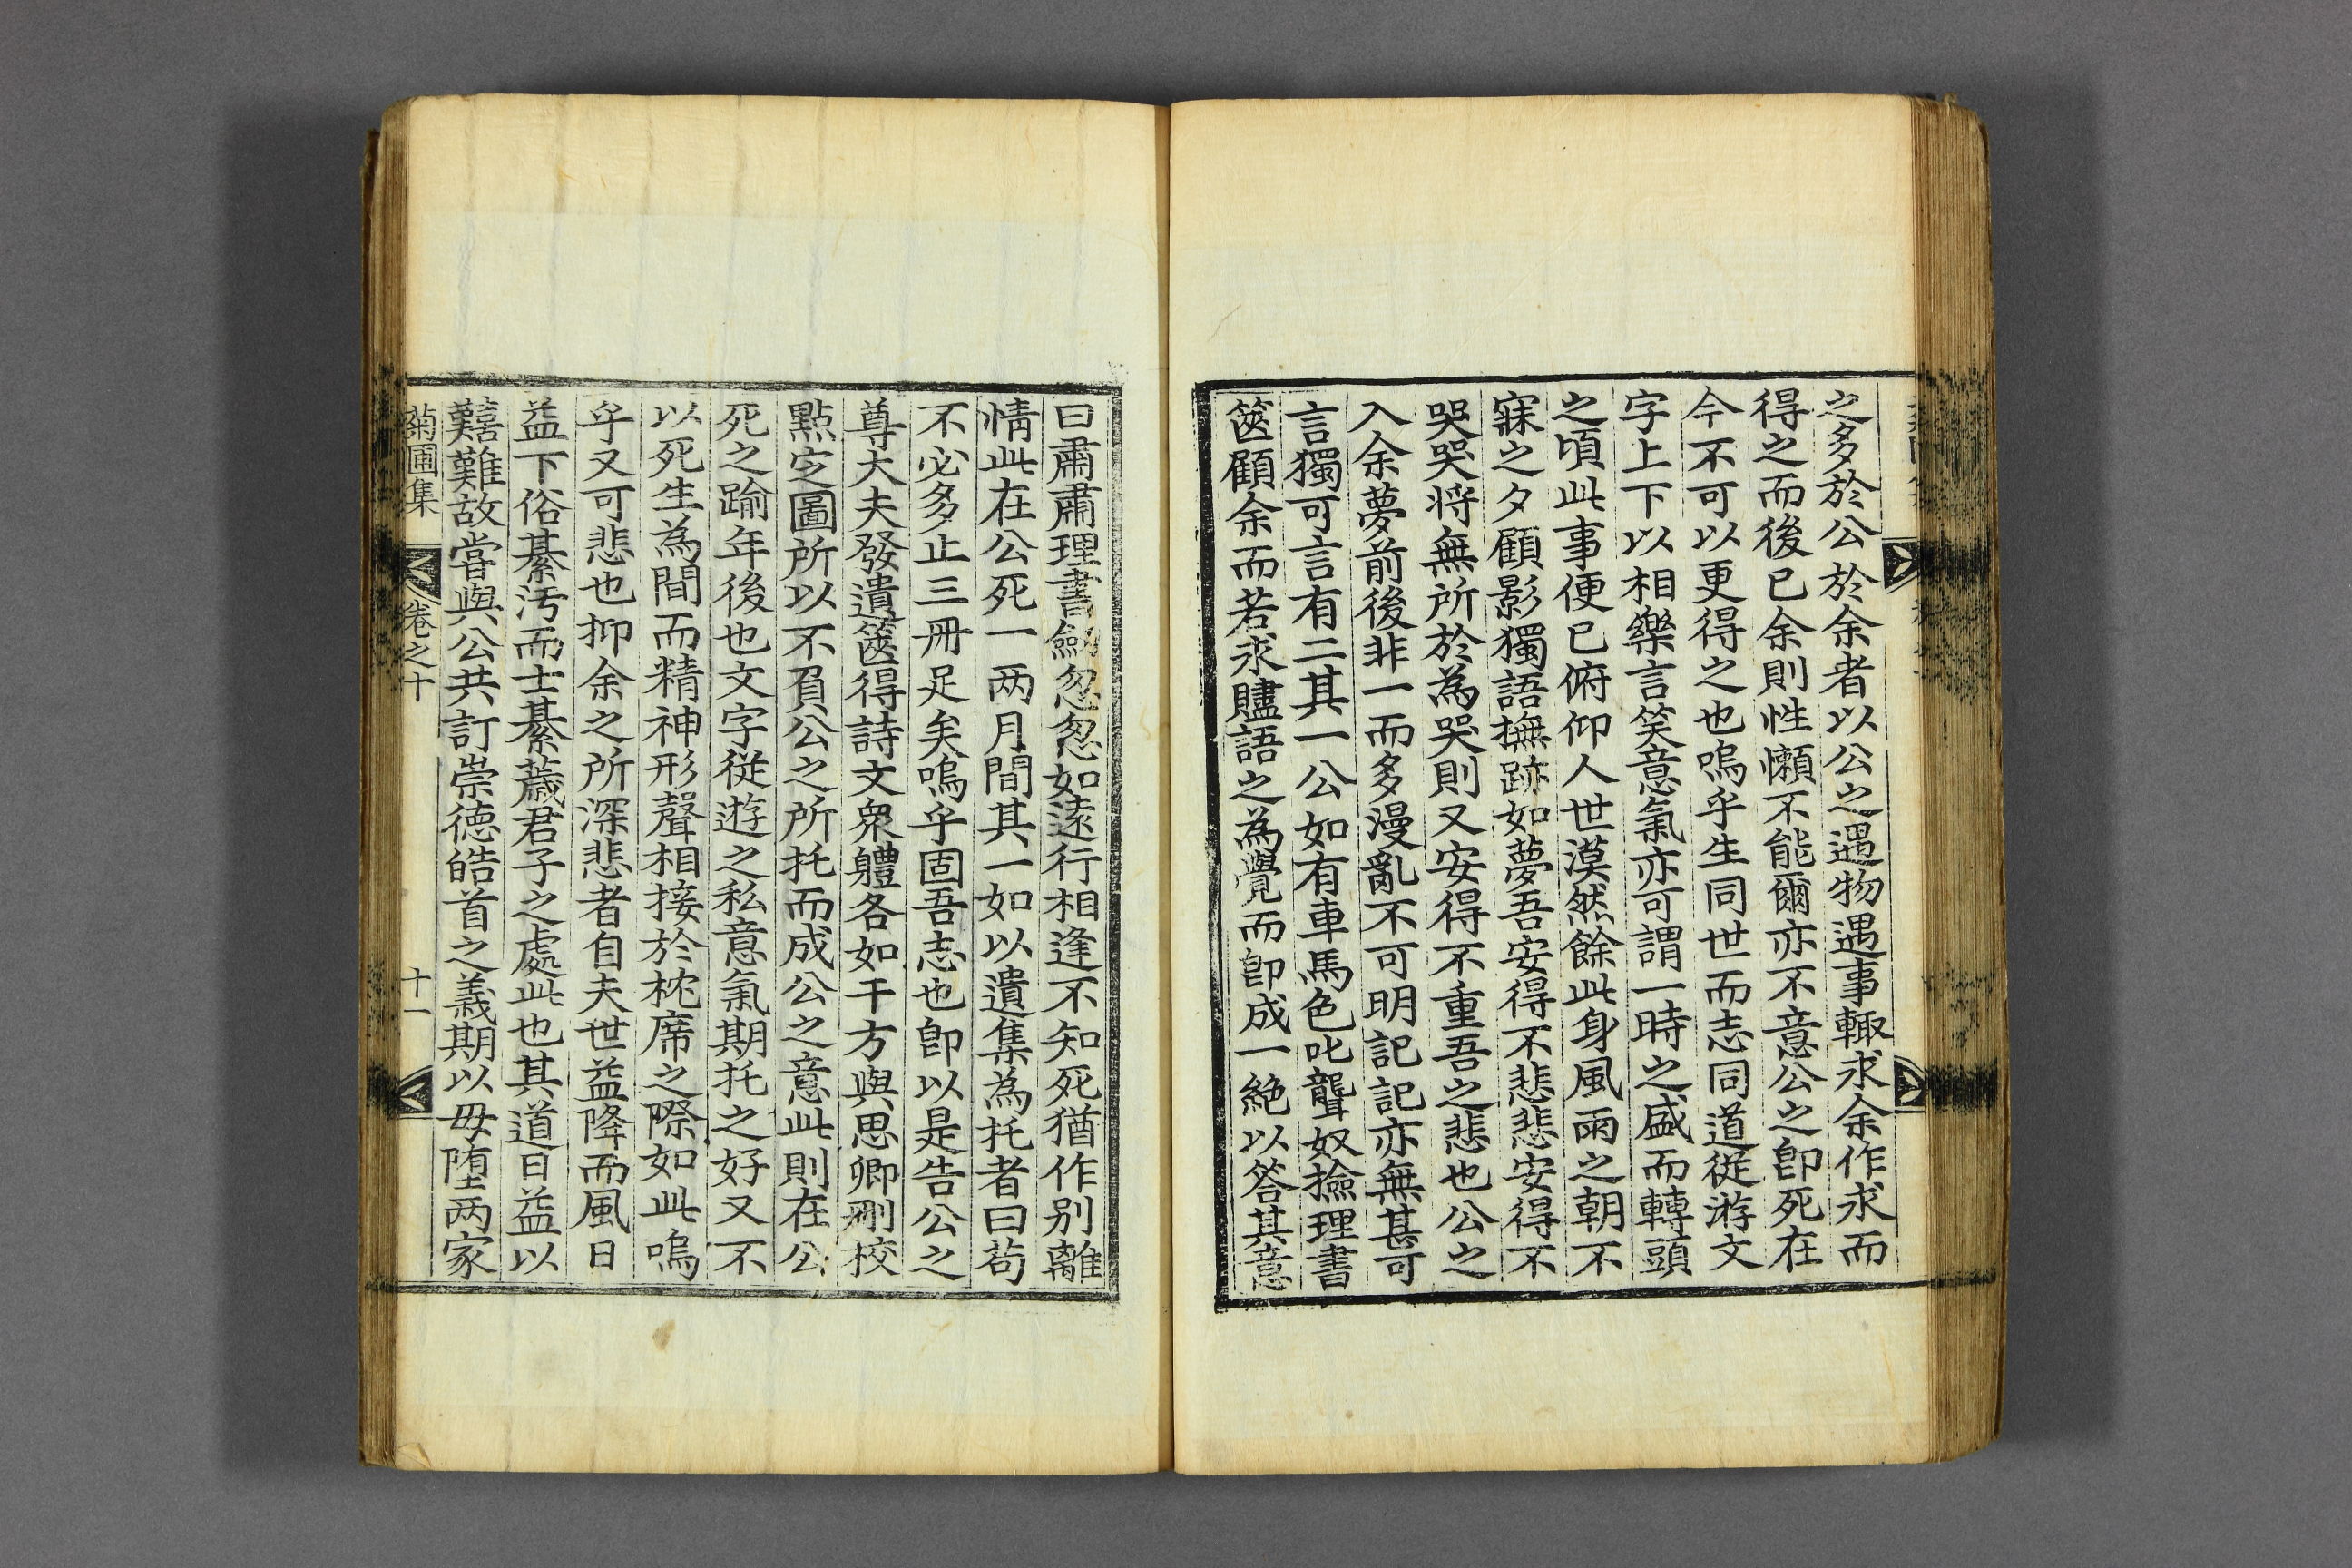 之多於公於余者以公之遇物遇事輙求余作求而
得之而後已余則性懶不能爾亦不意公之卽死在
今不可以更得之也嗚乎生同世而志同道從游文
字上下以相樂言笑意氣亦可謂一時之盛而轉頭
之頃此事便已俯仰人世漠然餘此身風雨之朝不
寐之夕顧影獨語撫跡如夢吾安得不悲悲安得不
哭哭将無所於為哭則又安得不重吾之悲也公之
入余夢前後非一而多漫亂不可明記記亦無甚可
言獨可言有二其一公如有車馬色叱聾奴撿理書
篋顧余而若求贐語之為覺而卽成一絶以答其意
曰肅肅理書劒忽忽如遠行相逢不知死猶作别離
情此在公死一两月間其一如以遺集為托者曰苟
不必多止三冊足矣嗚乎固吾志也卽以是告公之
尊大夫發遺篋得詩文衆軆各如干方與思卿刪校
點定圖所以不負公之所托而成公之意此則在公
死之踰年後也文字從遊之私意氣期托之好又不
以死生為間而精神形聲相接於枕席之際如此嗚
乎又可悲也抑余之所深悲者自夫世益降而風日
益下俗綦汚而士綦薉君子之處此也其道日益以
囏難故嘗與公共訂崇德皓首之義期以毋堕两家
菊圃集 卷之十 十一